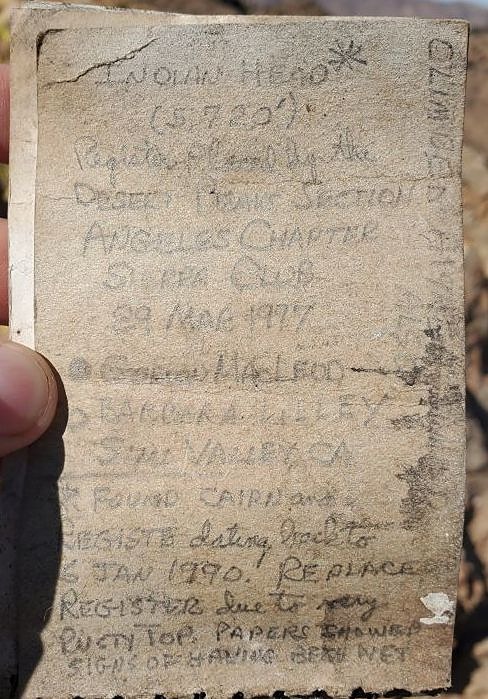 INDIAN HEAD *
(5,720')
Register placed by the
DESERT PEAKS SECTION
ANGELES CHAPTER
SIERRA CLUB
29 MAR 1997
GORDON MACLEOD
BARBARA LILLEY
SIMI VALLEY, CA
* FOUND CAIRN and
REGISTE dating back to
JAN 1990. REPLACE
REGISTER due to very
RUSTY TOP. PAPERS SHOWED
SIGNS OF HAVING BEEN WET
CLIMBED